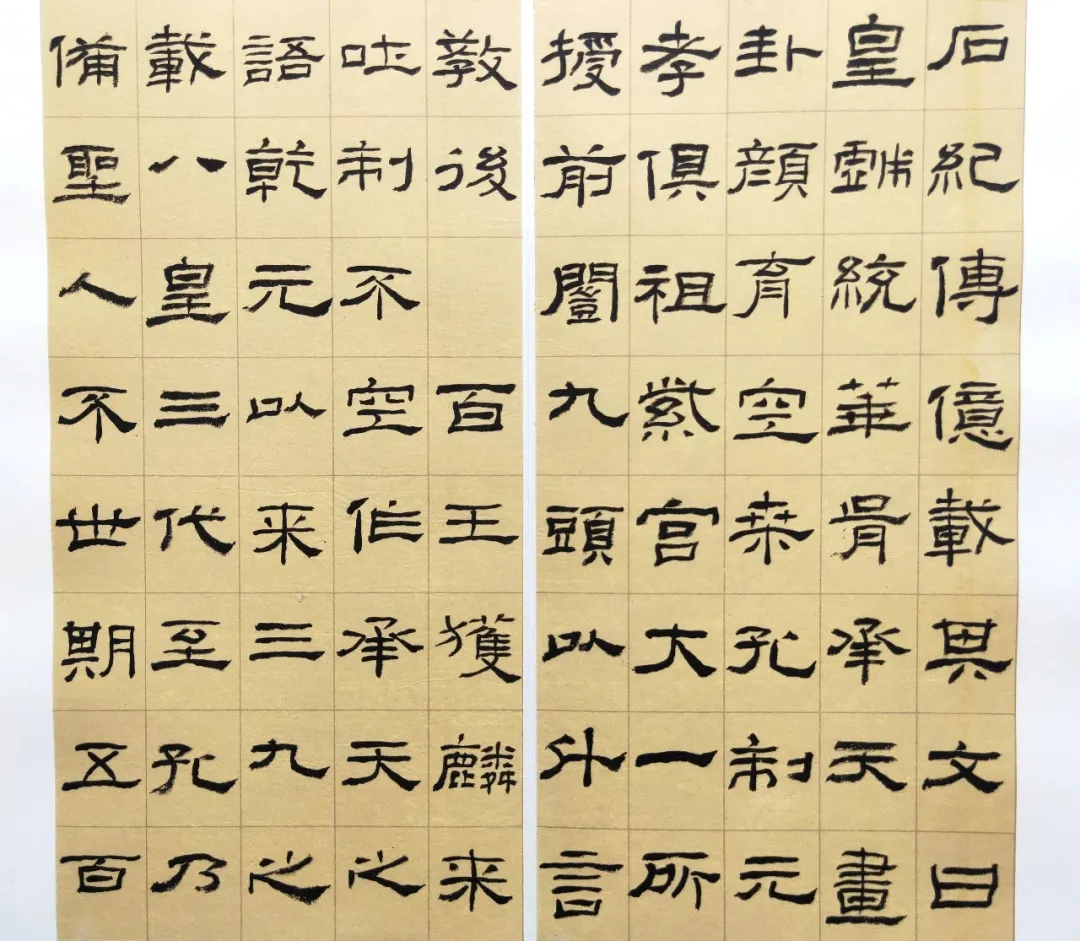 石紀傳億載其文曰
皇戲統華胥承天畫
卦顏育空桑孔制元
孝俱祖紫宮大一所
授前闓九頭以斗言
教後 百王獲麟来
吐制不空作承天之
語乾元以来三九之
載八皇三代至孔乃
備聖人不世期五百